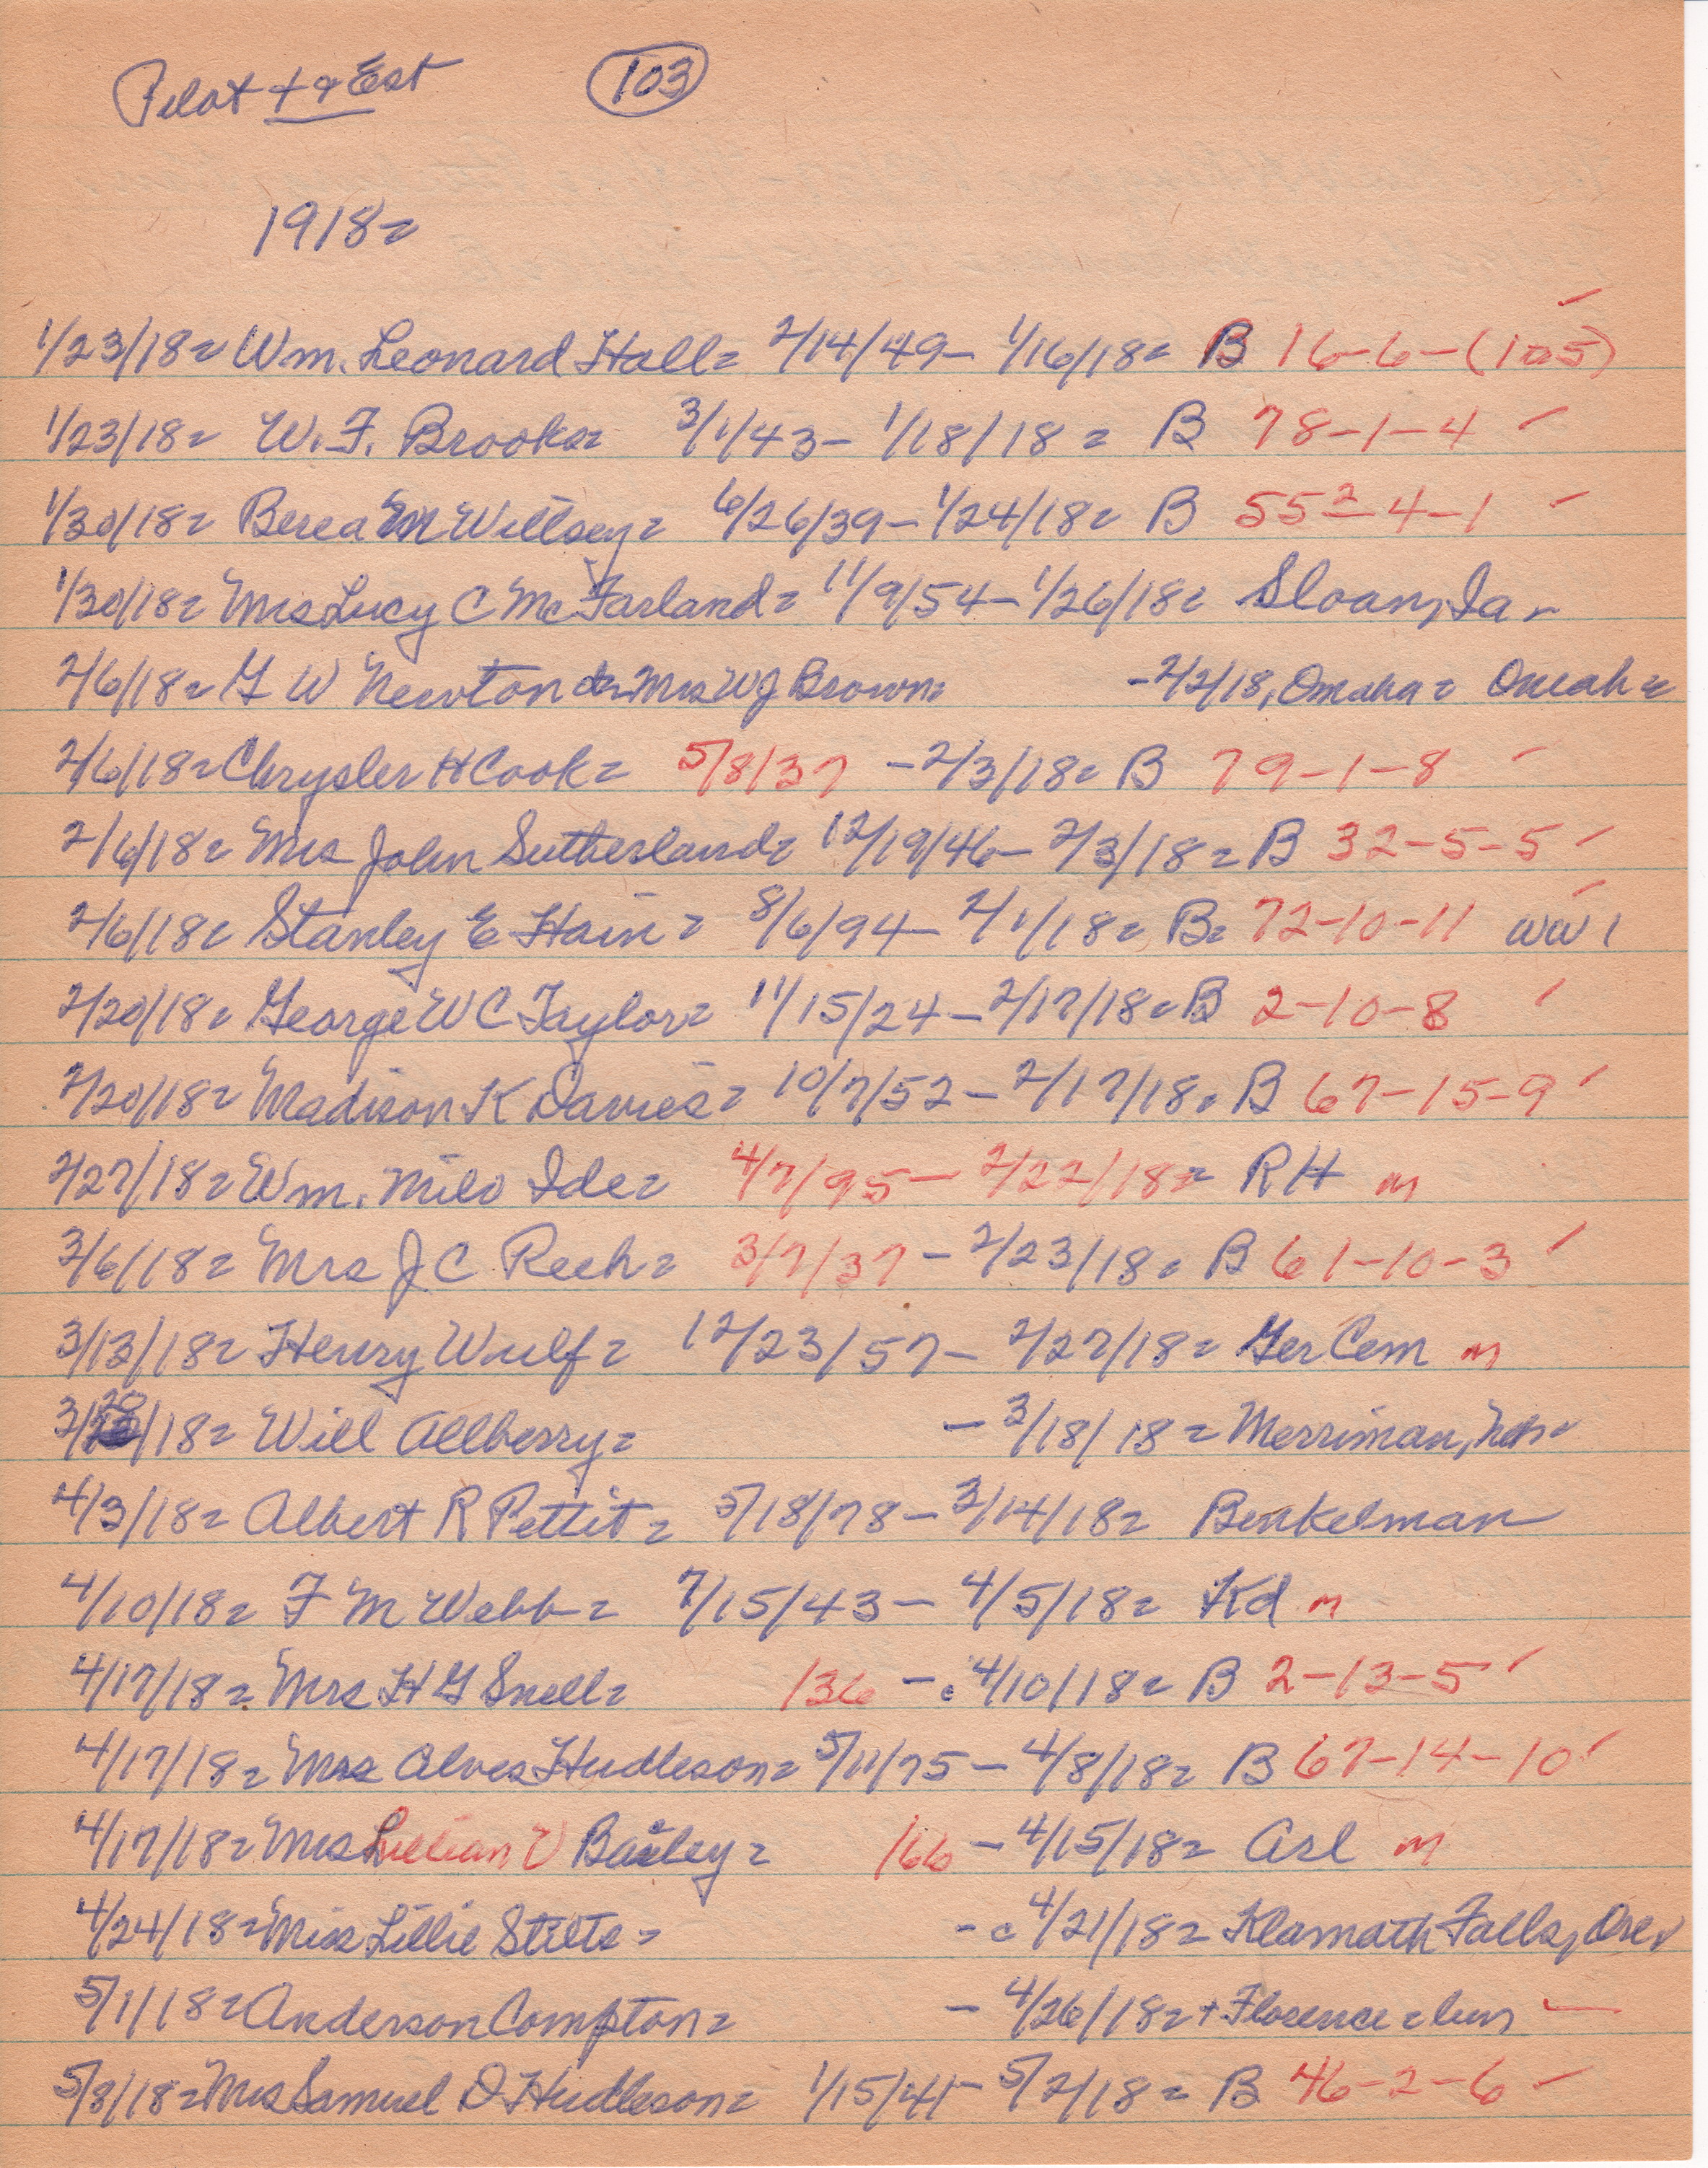 Pilot + & Est 103
1918=
1/23/18= Wm. Leonard Hall= 2/14/49- 1/16/18= B 16-6-(105) ✓
1/23/18= W. F. Brooks= 3/1/43- 1/18/18= B 78-1-4 ✓
1/30/18= Berea M Willsey= 6/26/39- 1/24/18= B 55²-4-1 ✓
1/30/18= Mrs Lucy C McFarland= 11/9/54- 1/26/18= Sloan, Ia.
2/6/18= G W Newton da Mrs W J Brown= -2/2/18, Omaha= Omaha=
2/6/18= Chrysler H Cook= 5/8/37 -2/3/18= B 79-1-8 ✓
2/6/18= Mrs John Sutherland= 12/19/46- 2/3/18= B 32-5-5 ✓
2/6/18= Stanley E Hain= 8/6/94- 2/1/18= B= 72-10-11 ✓ WW 1
2/20/18= George W C Taylor= 11/15/24- 2/17/18= B 2-10-8 ✓
2/20/18= Madison K Davies= 10/7/52- 2/17/18= B 67-15-9 ✓
2/27/18= Wm. Milo Ide= 4/7/95- 2/22/18= RH m
3/6/18= Mrs J C Reeh= 3/7/37- 2/23/18= B 61-10-3 ✓
3/13/18= Henry Wulf= 12/23/57- 2/27/18= Ger Cem m
3/20/18= Will Allberry= - 3/18/18= Merriman, Neb=
4/3/18= Albert R Pettit= 5/18/78- 3/14/18= Benkelman
4/10/18= F M Webb= 7/15/43- 4/5/18= Kd m
4/17/18= Mrs H G Snell= /36 - c 4/10/18= B 2-13-5 ✓
4/17/18= Mrs Alves Hudleson= 5/11/75- 4/8/18= B 67-14-10 ✓
4/17/18= Mrs Lillian V Bailey= /66 - 4/15/18= Arl m
4/24/18= Miss Lillie Stilts= - c 4/21/18= Klamath Falls, Ore.
5/1/18= Anderson Compton= - 4/26/18= + Florence =
5/8/18= Mrs Samuel D Hudleson= 1/15/41- 5/2/18= B 46-2-6 ✓